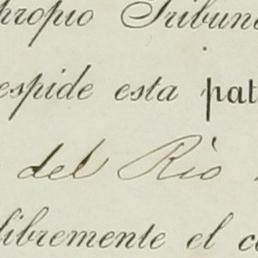 propio Tribuna
espide esta pat
del Rio
libremente el c